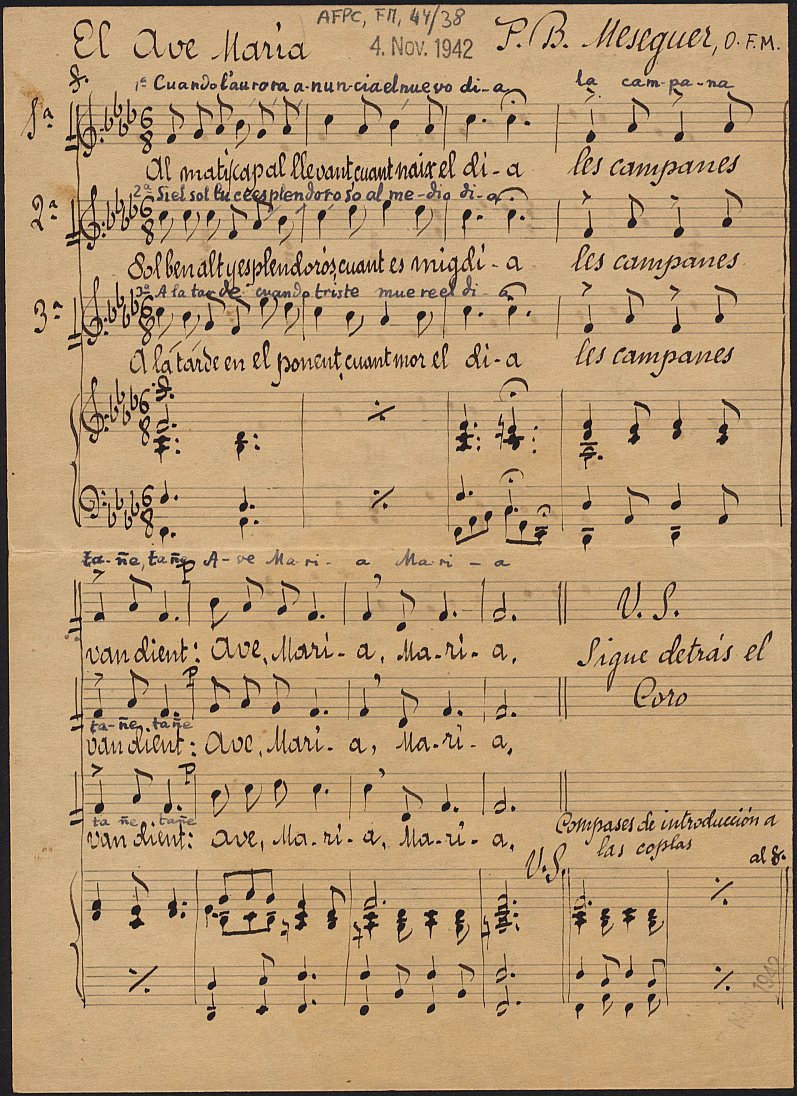 AFPC, FM, 44/38
El Ave María 4. Nov. 1942 P. B. Meseguer, O.F.M.
1ª Cuando l'aurora a-nun-cia el nuevo di-a la cam-pa-na
1ª
Al matí cap al llevant, cuant naix el dí-a les campanes
2ª Si el sol luce esplendoroso al me-dio di-a
2ª
Sol ben alt y esplendorós, cuant es mig dí-a les campanes
3ª A la tar-de cuando triste muere el di-a
3ª
A la tarde en el ponent, cuant mor el dí-a les campanes
ta-ñe, tañe A-ve Ma-ri-a Ma-ri-a
P
V. S.
van dient: Ave, Marí-a, Ma-rí-a,
Sigue detrás el
P
Coro
ta-ñe tañe
van dient: Ave, Marí-a, Ma-rí-a,
P
ta ñe tañe
van dient: Ave, Ma-rí-a, Ma-rí-a,
Compases de introducción a
las coplas
V. S.
al
Nov. 1942